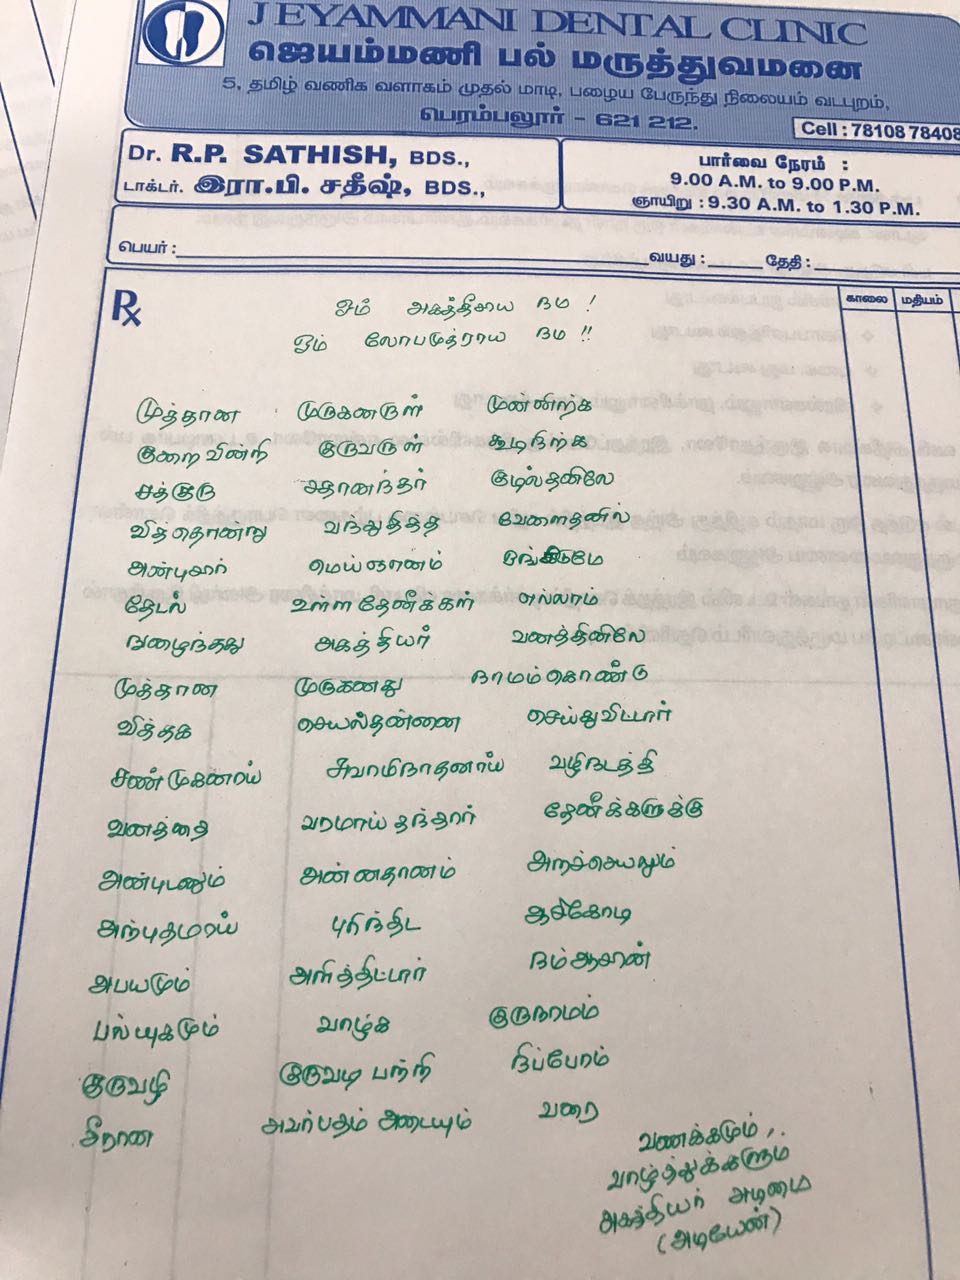 JEYAMMANI DENTAL CLINIC
ஜெயம்மணி பல் மருத்துவமனை
5, தமிழ் வணிக வளாகம் முதல் மாடி, பழைய பேருந்து நிலையம் வடபுறம்,
பெரம்பலூர் - 621 212.
Cell : 78108 78408
Dr. R.P. SATHISH, BDS.,
டாக்டர். இரா.பி. சதீஷ், BDS.,
பார்வை நேரம் :
9.00 A.M. to 9.00 P.M.
ஞாயிறு : 9.30 A.M. to 1.30 P.M.
பெயர் : வயது : தேதி :
Rx
காலை மதியம்
ஓம் அகத்தீசாய நம !
ஓம் லோபமுத்ராய நம !!
முத்தான முருகனருள் முன்னிற்க
குறைவின்றி குருவருள் கூடிநிற்க
சத்குரு சதானந்தர் குடில்தனிலே
வித்தொன்று வந்துதித்த வேளைதனில்
அன்புசார் மெய்ஞானம்
தேடல் உள்ள தேனீக்கள் எல்லாம்
நுழைந்தது அகத்தியர் வனத்தினிலே
முத்தான முருகனது நாமம்கொண்டு
வித்தக செயல்தன்னை செய்துவிட்டார்
சண்முகனாய் சுவாமிநாதனாய் வழிநடத்தி
வனத்தை வரமாய் தந்தார் தேனீக்களுக்கு
அன்புடனும் அன்னதானம் அறச்செயலும்
அற்புதமாய் புரிந்திட ஆசிகோடி
அபயமும் அளித்திட்டார் நம்ஆசான்
பல்யுகமும் வாழ்க குருநாமம்
குருவழி குருவடி பற்றி நிப்போம்
சீரான அவர்பதம் அடையும் வரை
வணக்கமும்,
வாழ்த்துக்களும்
அகத்தியர் அடிமை
(அடியேன்)